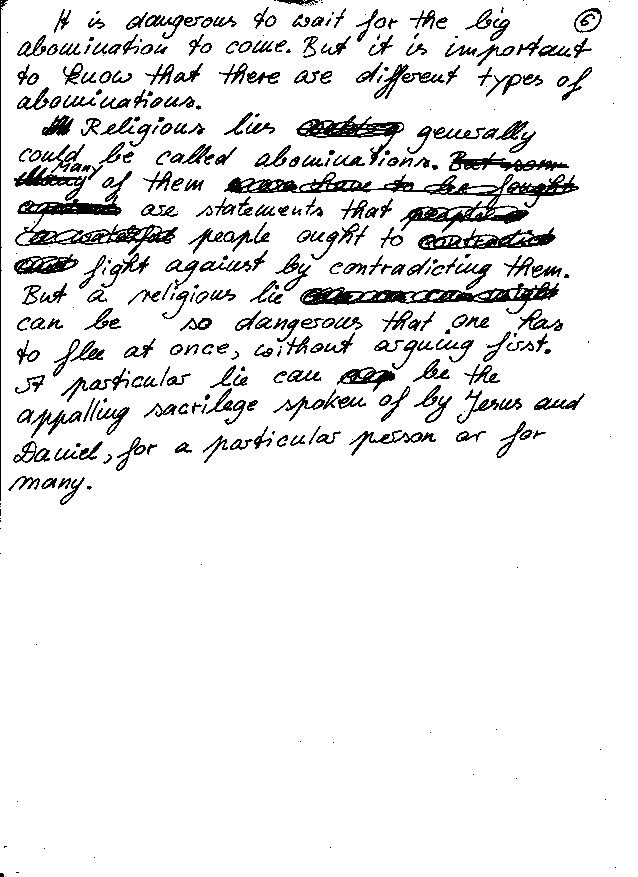 It is dangerous to wait for the big 6
abomination to come. But it is important
to know that there are different types of
abominations.
Religious lies generally
could be called abominations.
Many of them
are statements that
people ought to
fight against by contradicting them.
But a religious lie
can be so dangerous that one has
to flee at once, without arguing first.
A particular lie can be the
appalling sacrilege spoken of by Jesus and
Daniel, for a particular person or for
many.